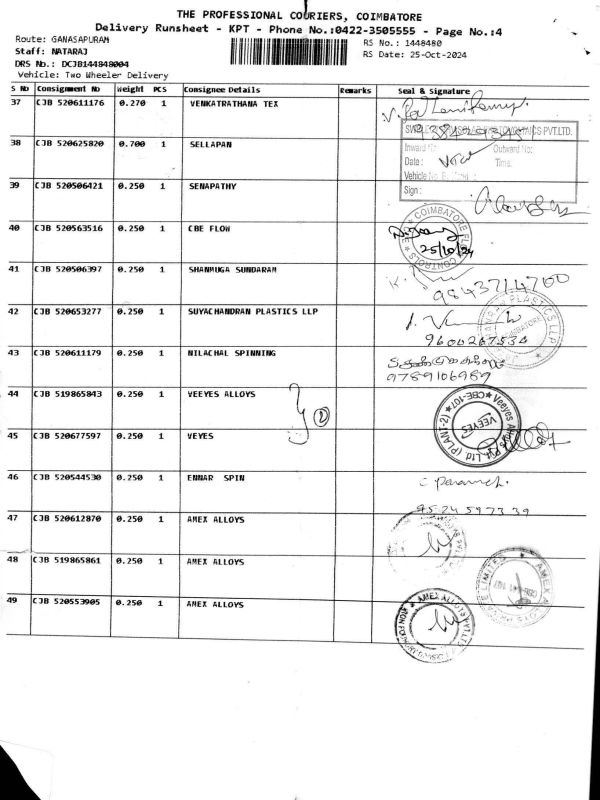 THE PROFESSIONAL COURIERS, COIMBATORE
Delivery Runsheet - KPT - Phone No.:0422-3505555 - Page No.:4
Route: GANASAPURAM
RS No.: 1448480
Staff: NATARAJ
RS Date: 25-Oct-2024
DRS No.: DCJB144848004
Vehicle: Two Wheeler Delivery
S No Consignment No Weight PCS Consignee Details Remarks Seal & Signature
37 CJB 520611176 0.270 1 VENKATRATHANA TEX
38 CJB 520625820 0.700 1 SELLAPAN
PVT.LTD.
Inward No: Outward No:
Date: Time:
Vehicle No.
Sign:
39 CJB 520506421 0.250 1 SENAPATHY
40 CJB 520563516 0.250 1 CBE FLOW
COIMBATORE CONTROLS
25/10/24
41 CJB 520506397 0.250 1 SHANMUGA SUNDARAM
9843714700
42 CJB 520653277 0.250 1 SUYACHANDRAN PLASTICS LLP
PLASTICS LLP
COIMBATORE
9600267534
43 CJB 520611179 0.250 1 NILACHAL SPINNING
9789106989
44 CJB 519865843 0.250 1 VEEYES ALLOYS
2
Veeyes Alloys Pvt. Ltd (PLANT-2) CBE-107
VEEYES
45 CJB 520677597 0.250 1 VEYES
46 CJB 520544530 0.250 1 ENNAR SPIN
9524597339
47 CJB 520612870 0.250 1 AMEX ALLOYS
48 CJB 519865861 0.250 1 AMEX ALLOYS
AMEX
LIMITED
49 CJB 520553905 0.250 1 AMEX ALLOYS
AMEX ALLOYS PVT.LTD